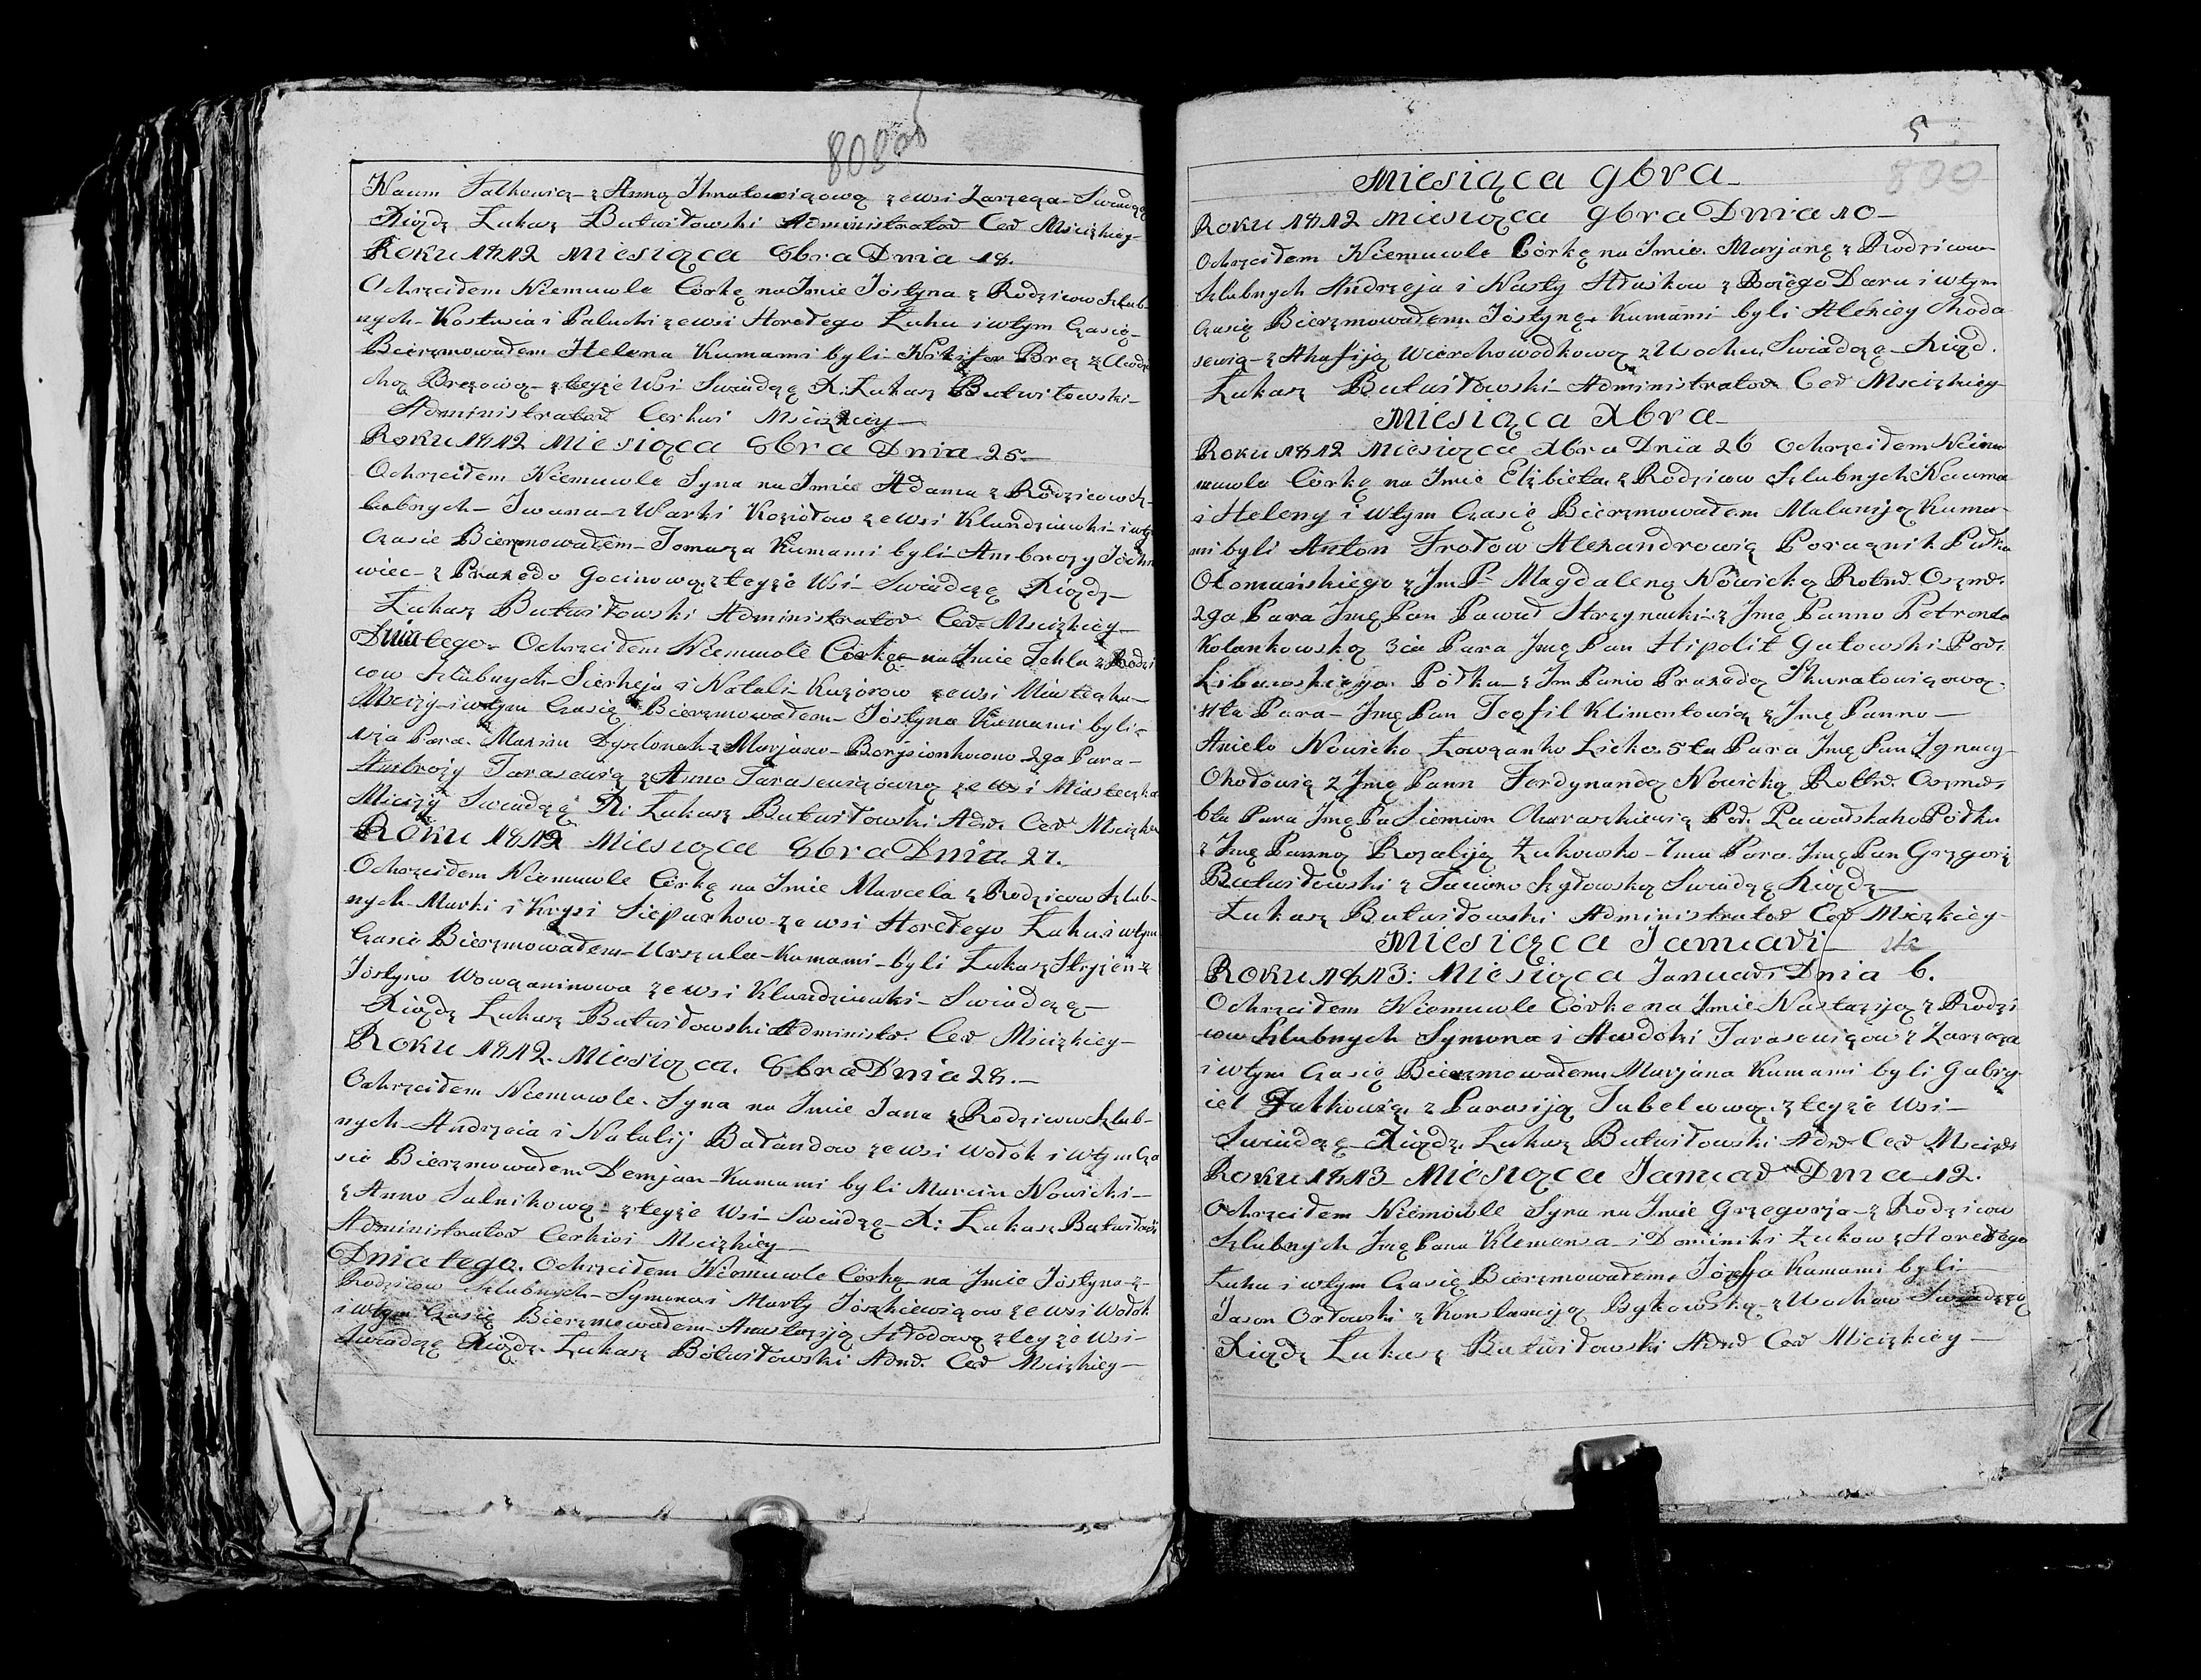 800 об
Naum Falkowicz z Anną Ihnatowiczową ze wsi Zarzecza Swiadczę
Xiądz Łukasz Butwiłowski Administrator Cer Mscizkiey
Roku 1812 Miesiąca 8bra Dnia 18.
Ochrzciłem Niemuwle Córkę na Jmie Jóstyna z Rodzicow Szlub-
nych Kostusia i Paluchi ze wsi Horełego Łuhu i wtym Czasię
Bierzmowałem Helena Kumami byli Nikifor Brez z Awdo
chą Brezową z teyże Wsi Swiadczę X. Łukasz Butwiłowski
Administrator Cerkwi Mscizkiey
Roku 1812 Miesiąca 8bra Dnia 25.
Ochrzciłem Niemuwle Syna na Jmie Adama z Rodzicow Sz-
lubnych Jwana i Warki Koziołow ze wsi Klundziuwki i wtym
Czasie Bierzmowałem Tomasza Kumami byli Ambrozy
wiec z Praxedo Gocinową z teyże Wsi Swiadczę Xiądz
Łukasz Butwiłowski Administrator Cer Mscizkiey
Dnia tego Ochrzciłem Niemuwle Córkę na Jmie Tekla z Rodzi
cow Szlubnych Sierheja i Natali ze wsi Miasteczka
Mscizy i wtym Czasię Bierzmowałem Jóstyna Kumami byli
1sza Para Maxim z Marjano 2ga Para
Ambroży Tarasewicz z Anno Tarasewiczówną ze wsi Miasteczka
Mscizy Swiadczę X. Łukasz Butwiłowski Adm. Cer Mscizkiey
Roku 1812 Miesiąca 8bra Dnia 27.
Ochrzciłem Niemuwle Córkę na Jmie Marcela z Rodzicow Szlub-
nych Marki i Krysi ze wsi Horełego Łuhu i wtym
Czasie Bierzmowałem Urszula Kumami byli Łukasz z
Jóstyno ze wsi Klundziuwki Swiadczę
Xiądz Łukasz Butwiłowski Administr. Cer Mscizkiey
Roku 1812. Miesiąca. 8bra Dnia 28.
Ochrzciłem Niemuwle Syna na Jmie Jana z Rodzicow Szlub-
nych Andrzeia i Natalij Bałandow ze wsi Wołok i wtym Cza
sie Bierzmowałem Demjan Kumami byli Marcin Nowicki
z Anno Salnikową z teyże Wsi Swiadczę X: Łukasz Butwiłowski
Administrator Cerkwi Mscizkiey
Dnia tego. Ochrzciłem Niemuwle Córkę na Jmie Jóstyno z
Rodzicow Szlubnych Symona i Marty Jószkiewiczow ze wsi Wołok
i wtym Czasię Bierzmowałem Anastazyją z teyże Wsi
Swiadczę Xiądz Łukasz Bótwiłowski Adm. Cer Mscizkiey
5
800
Miesiąca 9bra
Roku 1812 Miesiąca 9bra Dnia 10
Ochrzciłem Niemuwle Córkę na Jmie Marjanę z Rodzicow
Szlubnych Andrzeja i Nasty z Bożego Daru i wtym
Czasię Bierzmowałem Jóstynę Kumami byli Alexiey Choda
sewicz z Ahafiją Wierchowodkową z Uschu Swiadczę Xiądz
Łukasz Butwiłowski Administrator Cer Mscizkiey
Miesiąca Xbra
Roku 1812 Miesiąca Xbra Dnia 26 Ochrzciłem
muwle Córkę na Jmie Elzbieta z Rodzicow Szlubnych Nauma
i Heleny i wtym Czasię Bierzmowałem Malaniją Kuma-
mi byli Anton Frołow Alexandrowicz Poracznik
z Magdaleną Nowicką
2ga Para Jmę Pan Paweł z Jmę Panno
Kolankowską 3cia Para Jmę Pan Hipolit Gutowski
Libawskiego Półku z Praxedą
4ta Para Jmę Pan Teofil Klimontowicz z Jmę Panno
Anielo Nowicko 5ta Para Jmę Pan Jgnacy
Okołowicz z Jmę Pann Ferdynandą Nowicką
6ta Para Jmę Siemion Półku
z Jmę Panną Rozaliją Łukowsko 7ma Para Jmę Pan Grzgorz
Butwiłowski z Szyłowską Swiadczę Xiądz
Łukasz Butwiłowski Administrator Cer Mscizkiey
Miesięca Januari
Roku 1813: Miesiąca Januari Dnia 6.
Ochrzciłem Niemuwle Córkę na Jmie Nastazyją z Rodzi
cow Szlubnych Symona i Awdoki Tarasewiczow z Zarzecza
i wtym Czasię Bierzmowałem Marjana Kumami byli Gabry-
iel Falkowicz z Parasiją z teyże Wsi
Swiadczę Xiądz Łukasz Butwiłowski Adm Cer Mscizki
Roku 1813 Miesiąca Januar Dnia 12.
Ochrzciłem Niemowle Syna na Jmie Grzegorja z Rodzicow
Szlubnych Jmę Pana Klemensa i Dominiki Łukow z Horełego
Łuhu i wtym Czasię Bierzmowałem Józefa Kumami byli
Jason Orłowski z Konstanciją Bykowską z Uschow Swiadczę
Xiądz Łukasz Butwiłowski Adm Cer Mscizkiey